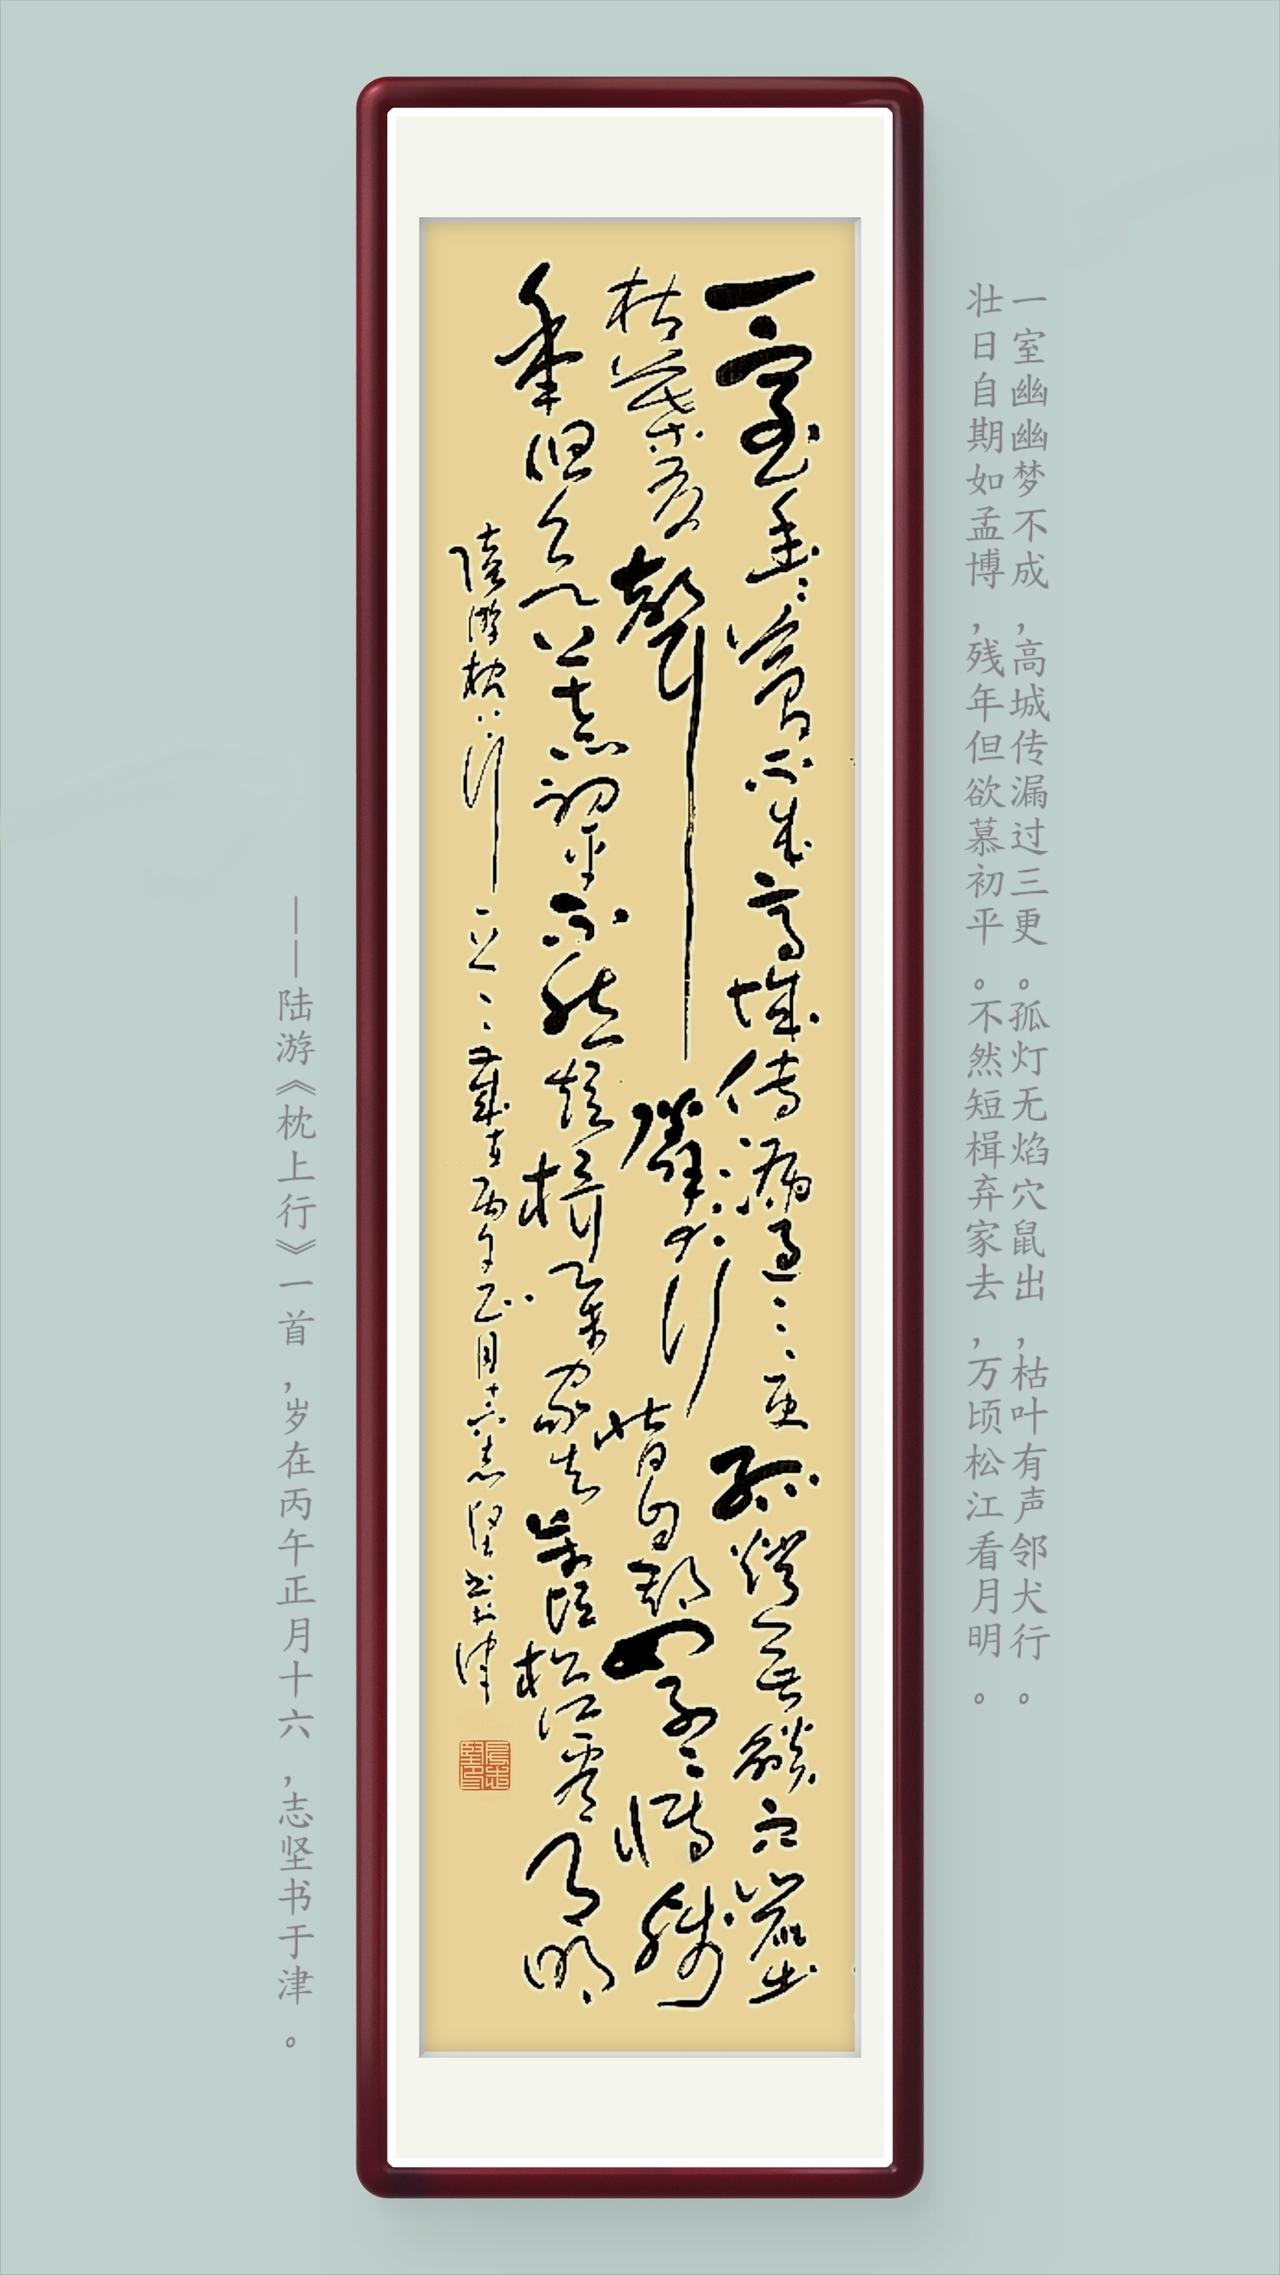 一室幽幽梦不成，高城传漏过三更。孤灯无焰穴鼠出，枯叶有声邻犬行。
壮日自期如孟博，残年但欲慕初平。不然短楫弃家去，万顷松江看月明。
一室幽幽夢不成高城傳漏過三更孤燈無燄穴鼠出
枯葉有聲鄰犬行壯日自期如孟博殘
年但欲慕初平不然短楫棄家去萬頃松江看月明
陸游枕上行一首歲在丙午正月十六志堅書於津
——陆游《枕上行》一首，岁在丙午正月十六，志坚书于津。